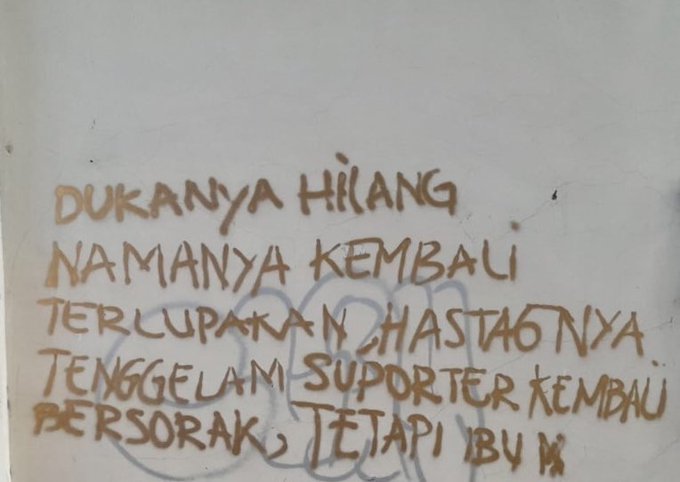 DUKANYA HILANG
NAMANYA KEMBALI
TERLUPAKAN, HASTAGNYA
TENGGELAM SUPORTER KEMBALI
BERSORAK, TETAPI IBU